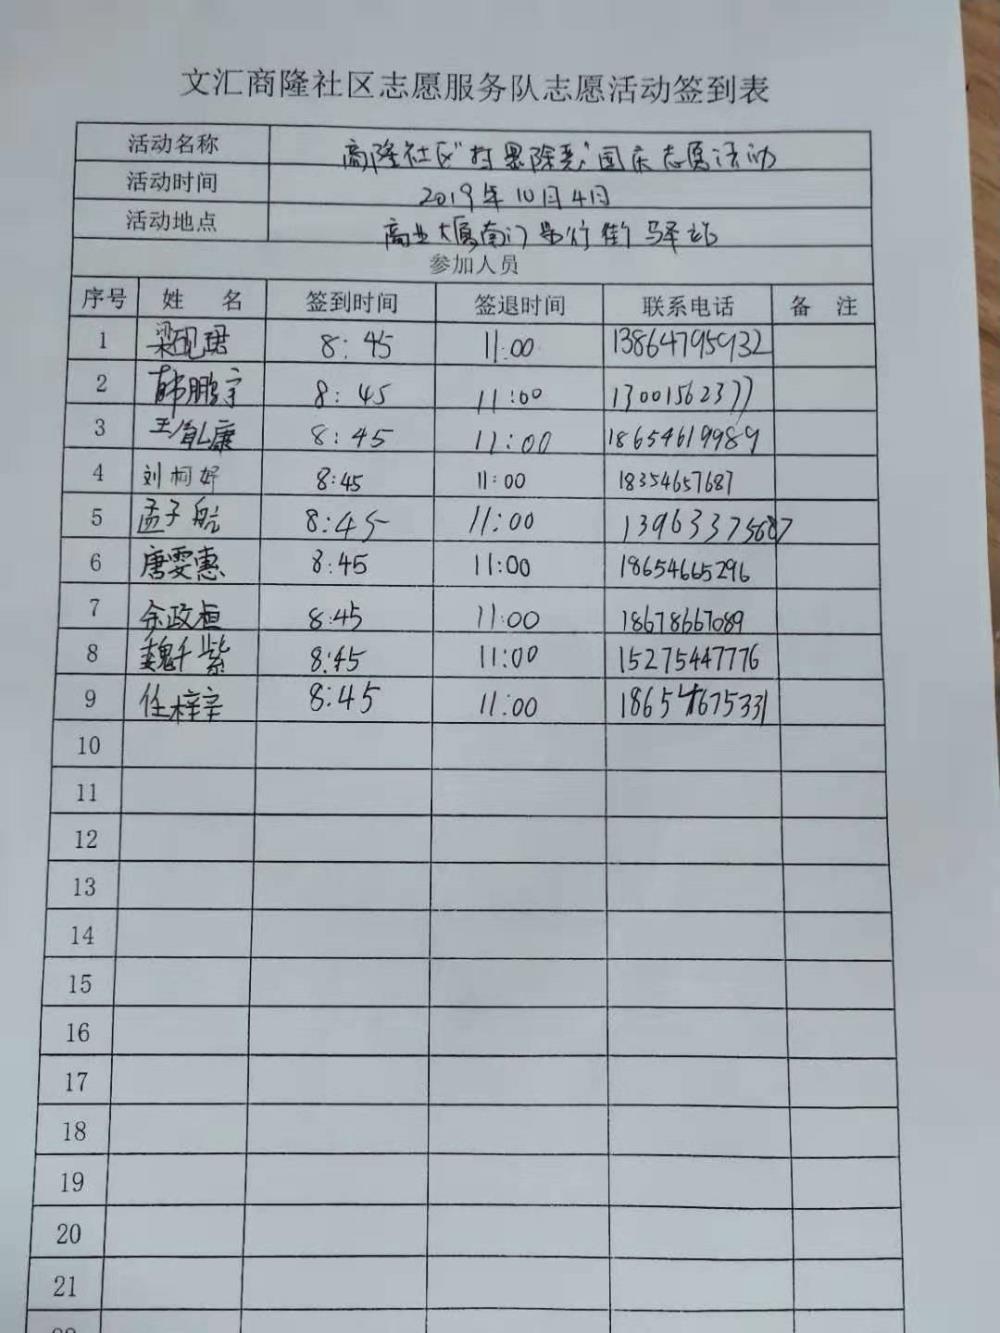 文汇商隆社区志愿服务队志愿活动签到表
活动名称 商隆社区"打黑除恶"国庆志愿活动
活动时间 2019年10月4日
活动地点 商业大厦南门步行街驿站
参加人员
序号 姓 名 签到时间 签退时间 联系电话 备 注
1 梁砚珺 8:45 11:00 13864795932
2 韩鹏宇 8:45 11:00 13001562377
3 王 康 8:45 11:00 18654619989
4 刘柯妤 8:45 11:00 18354657687
5 孟子航 8:45 11:00 13963375687
6 唐雯惠 8:45 11:00 18654665296
7 余政桓 8:45 11:00 18678667089
8 魏千紫 8:45 11:00 15275447776
9 任梓辛 8:45 11:00 18654675331
10
11
12
13
14
15
16
17
18
19
20
21